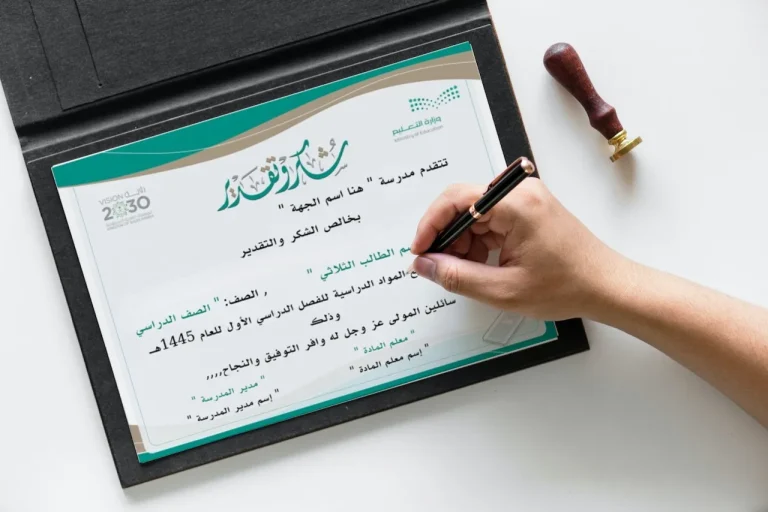 وزارة التعليم
Ministry of Education
VISION رؤية
2030
شكر وتقدير
تتقدم مدرسة " هنا اسم الجهة "
بخالص الشكر والتقدير
الطالب الثلاثي " , الصف: " الصف الدراسي
المواد الدراسية للفصل الدراسي الأول للعام 1445هـ
وذلك
سائلين المولى عز وجل له وافر التوفيق والنجاح,,,,
" معلم المادة "
" إسم معلم المادة "
" مدير المدرسة "
" إسم مدير المدرسة "